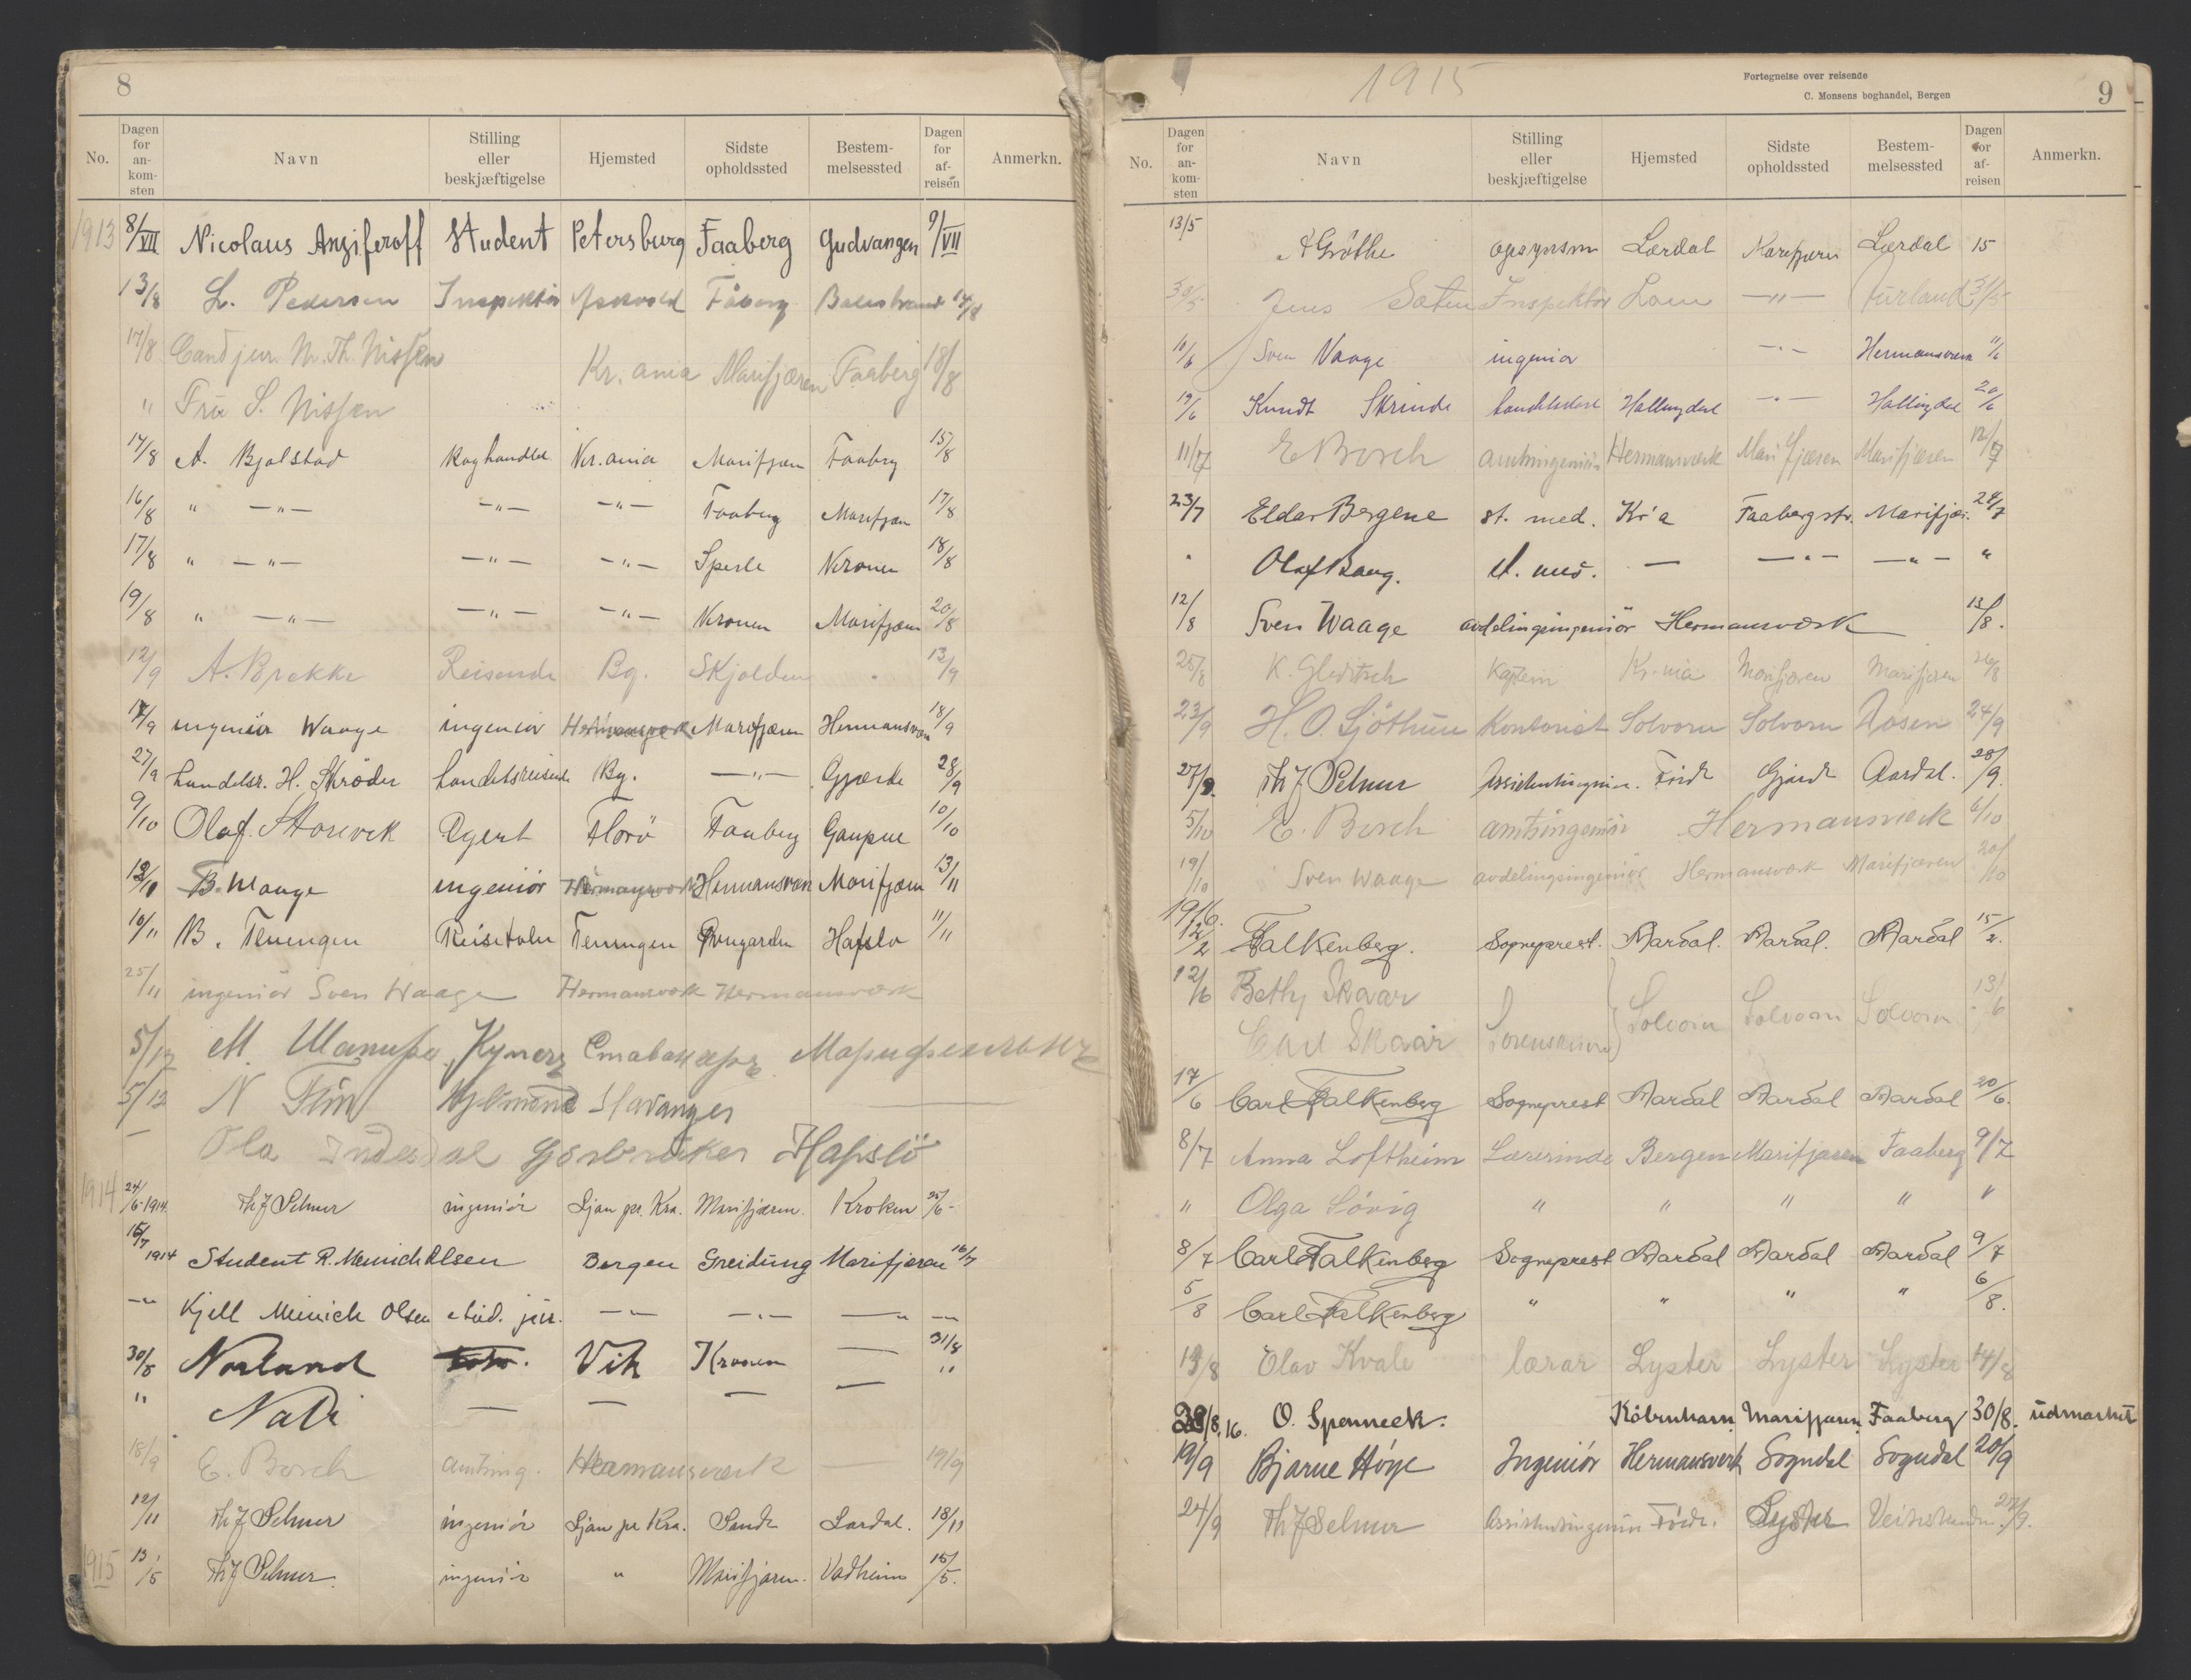 8
No. Dagen for an- kom- sten Navn Stilling eller beskjæftigelse Hjemsted Sidste opholdssted Bestem- melsessted Dagen for af- reisen Anmerkn.
1913 8/VII Nicolaus Anziferoff Student Petersburg Faaberg Gudvangen 9/VII
13/8 L. Pedersen Inspektör Fåberg 14/8
17/8 Cand jur. M. Th. Nissen Kr.ania Marifjæren Faaberg 18/8
" Frü S. Nissen
14/8 A. Bjølstad Kr.ania Marifjæren Faaberg 15/8
16/8 " —"— —"— —"— Faaberg Marifjæren 17/8
17/8 " —"— —"— —"— Sperle Kronen 18/8
19/8 " —"— —"— —"— Kronen Marifjæren 20/8
12/9 A. Brekke Reisende Bg. Skjolden 13/9
17/9 ingeniør Waage ingeniør Hermansverk Marifjæren Hermansverk 18/9
27/9 handelsr. H. Skrøder handelsreisende Bg. —"— Gjerde 28/9
9/10 Olaf Agent Florö Faaberg Gaupne 10/10
B. Waage ingeniör Hermansverk Hermansverk Marifjæren 13/11
10/11 B. Teningen Teningen Hafslo 11/11
25/11 ingeniør Sven Waage Hermansverk Hermansverk
5/12 М. Шапиро Купецъ Ставангеръ
5/12 N Kjøbmand Stavanger
— Ola Gårbruker Hafslö
1914 24/6-1914. Th J Selmer ingeniör Ljan pr. Kra. Marifjæren. Kroken 25/6-
15/7 1914 Student R. Meinich Olsen Bergen Greidung Marifjæren 16/7
—"— Kjell Meinich Olsen stud. jur. —"— —"— —"— —"—
30/8 Norland Vik Kronen — 31/8
" NaDi — — — — "
18/9 E. Bosch amtsing. Hermansverk — 19/9
12/11 Th J Selmer ingeniör Ljan pr Kra. Sande Lærdal. 18/11
1915 13/5 Th J Selmer ingeniör " Marifjæren. Vadheim 15/5.
1915
Fortegnelse over reisende
C. Monsens boghandel, Bergen
9
No. Dagen for an- kom- sten Navn Stilling eller beskjæftigelse Hjemsted Sidste opholdssted Bestem- melsessted Dagen for af- reisen Anmerkn.
13/5 A Gröthe opsynsm Lærdal Marifjæren Lærdal 15
30/5 Jens Inspektör Lom —"— Aurland 31/5
10/6 Sven Vaage ingeniør —"— Hermansverk 11/6
19/6 Knudt Skrinde Hallingdal —"— Hallingdal 20/6
11/7 E Bosch amtsingeniör Hermansverk Marifjæren Marifjæren 12/7
23/7 Eldar Bergene st. med. Kr'a Faabergstr. Marifjær. 24/7
" Olaf Bang. st. med. — —"— —"— "
12/8 Sven Waage avdelingsingeniör Hermansverk 13/8.
25/8 K. Gleditsch Kaptein Kr.nia Marifjæren Marifjæren 26/8
23/9 H. O. Sjöthun Kontorist Solvorn Solvorn Aasen 24/9
27/9. Th J Selmer Assistentingeniør. Förde Gjerde Aardal. 28/9.
5/10 E. Bosch amtsingeniör Hermansverk 6/10
19/10 Sven Waage avdelingsingeniör Hermansverk Marifjæren 20/10
1916.
12/2 Falkenberg. Sogneprest. Aardal. Aardal. Aardal 15/2.
12/6 Betty Skaar
Carl Skaar Solvorn Solvorn Solvorn 13/6
17/6 Carl Falkenberg Sogneprest Aardal Aardal Aardal 20/6.
8/7 Anna Loftheim Lærerinde Bergen Marifjæren Faaberg 9/7
" Olga Sövig " " " " "
8/7 Carl Falkenberg Sogneprest Aardal Aardal Aardal 9/7
5/8 Carl Falkenberg " " " " 6/8.
13/8 Olav Kvale lærar Lyster Lyster Lyster 14/8
O. Spenneck. Köbenhavn Marifjæren Faaberg 30/8. üdmarket
19/9 Bjarne Høye Ingeniör Hermansverk Sogndal Sogndal 20/9
24/9 Th J Selmer Assistentingeniør Förde. Lyster 27/9.